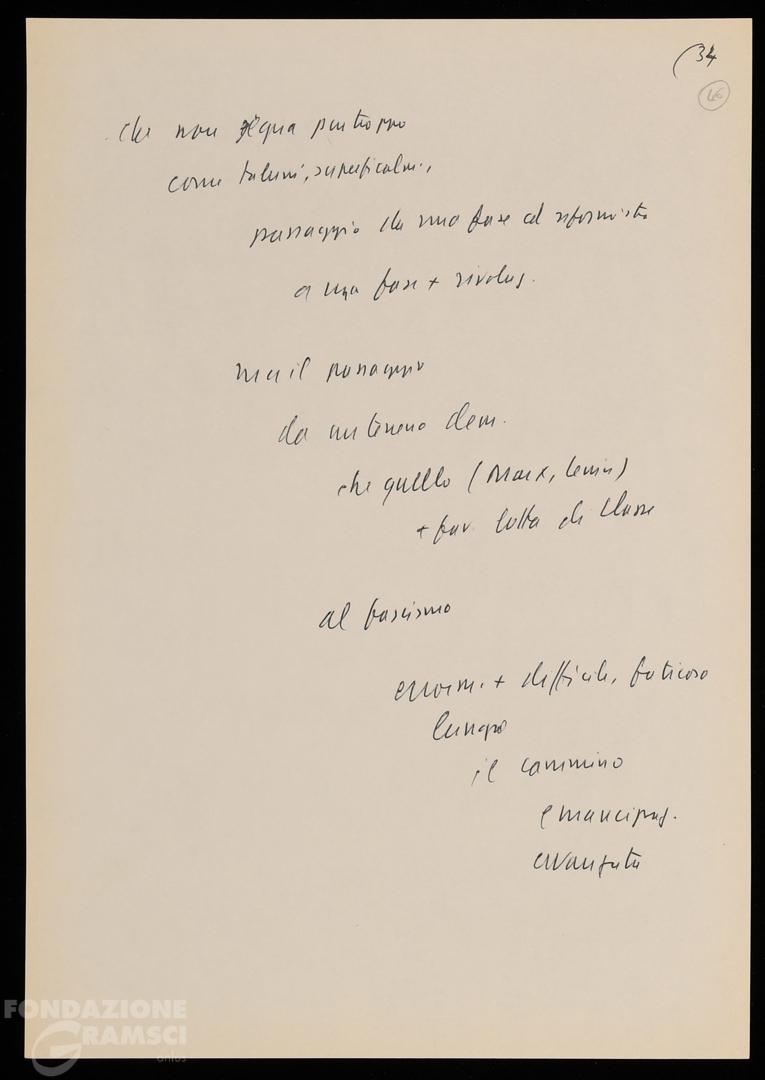 (34
46
che non segna purtroppo
come taluni, superficialm.,
passaggio da una fase cd riformista
a una fase + rivoluz.
ma il passaggio
da un terreno dem.
che quello (Marx, Lenin)
+ fav. lotta di classe
al fascismo
enorm. + difficile, faticoso
lungo
il cammino
emancipaz.
avanzata
FONDAZIONE
GRAMSCI
onlus